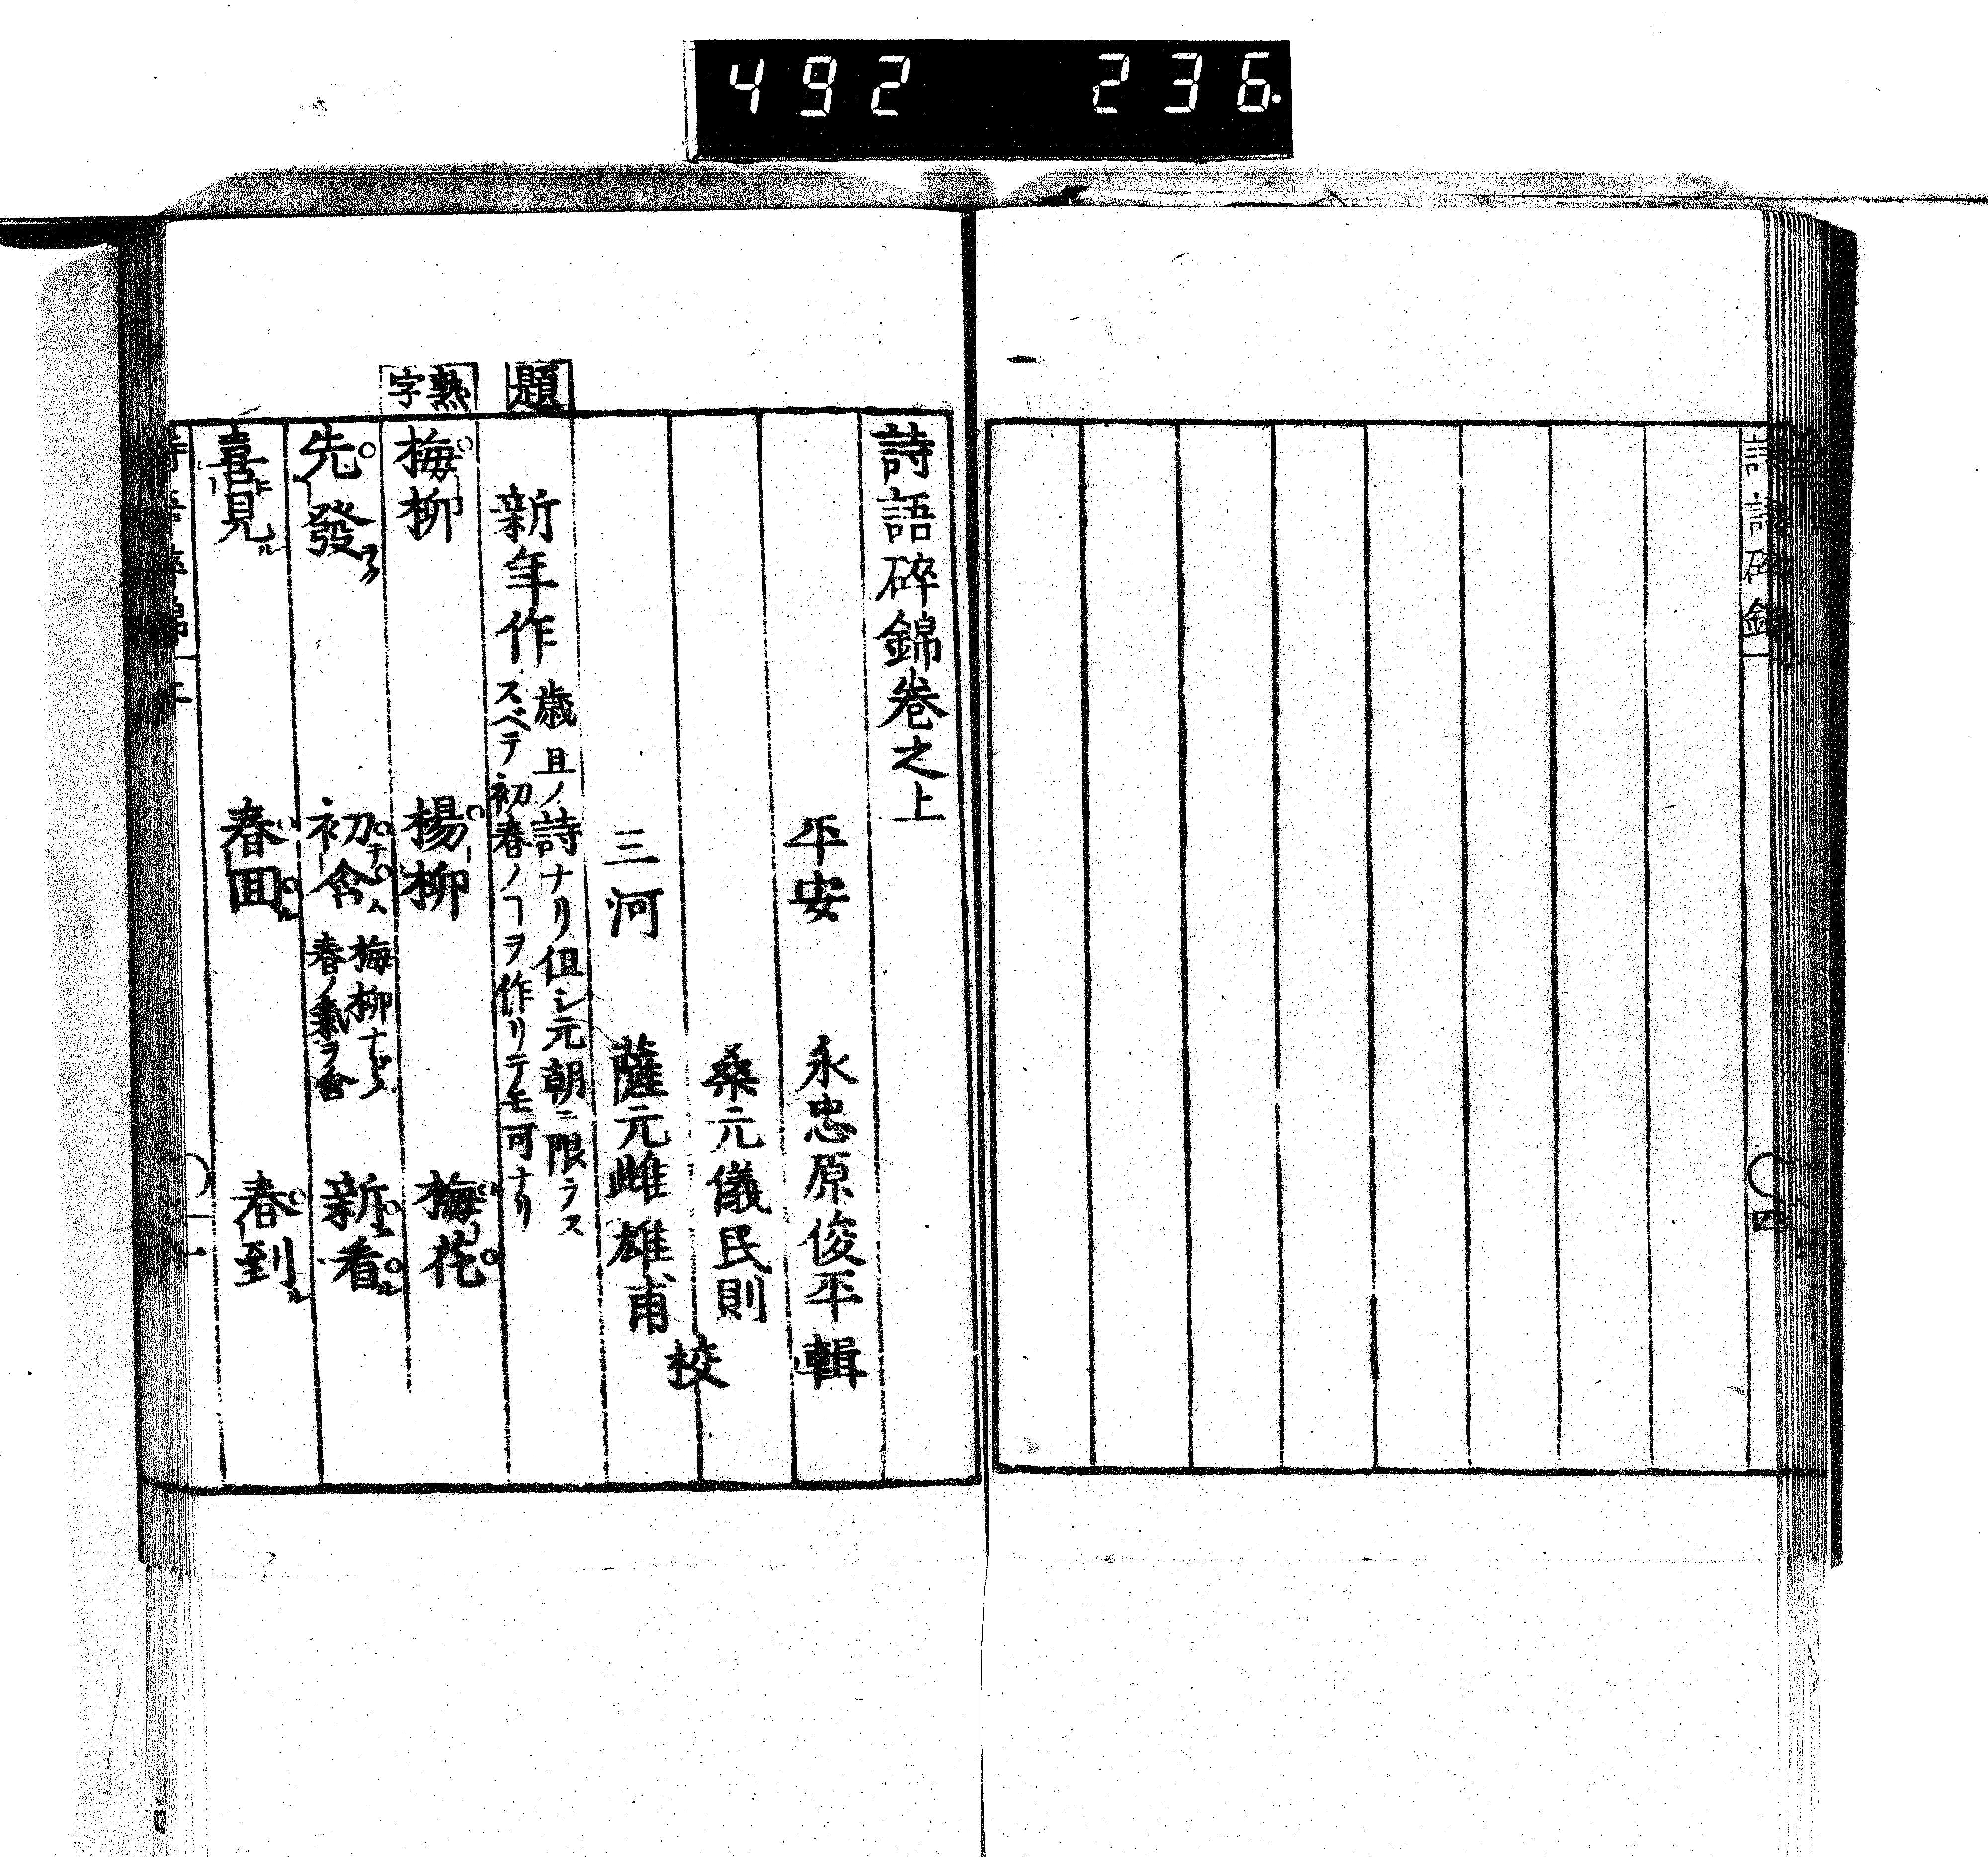 492 236
詩語碎錦
四
詩語碎錦卷之上
平安 永忠原俊平輯
桑元儀民則
三河 薩元雌雄甫
校
題
新年作
歳旦ノ詩ナリ但シ元朝ニ限ラス
スベテ初春ノヿヲ作リテモ可ナリ
熟字
梅柳 楊柳 梅花
先發 初含 梅柳ナド 春ノ氣ヲ含 新看
喜見 春囬 春到